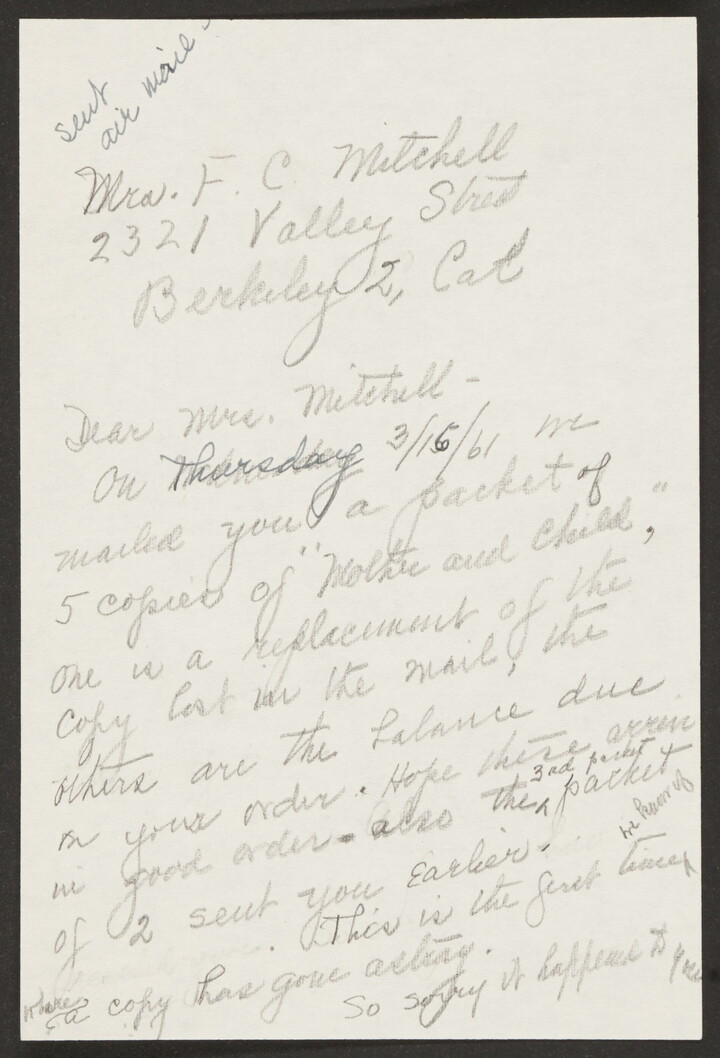 sent
air mail -
Mrs. F. C. Mitchell
2321 Valley Street
Berkeley 2, Cal
Dear Mrs. Mitchell -
On Thursday 3/16/61 we
mailed you a packet of
5 copies of "Mother and Child,"
one is a replacement of the
copy lost in the mail, the
others are the balance due
on your order. Hope these arrive
in good order - also the 3rd packet packet
of 2 sent you Earlier.
This is the first time we know of
where a copy has gone astray.
So sorry it happened to you